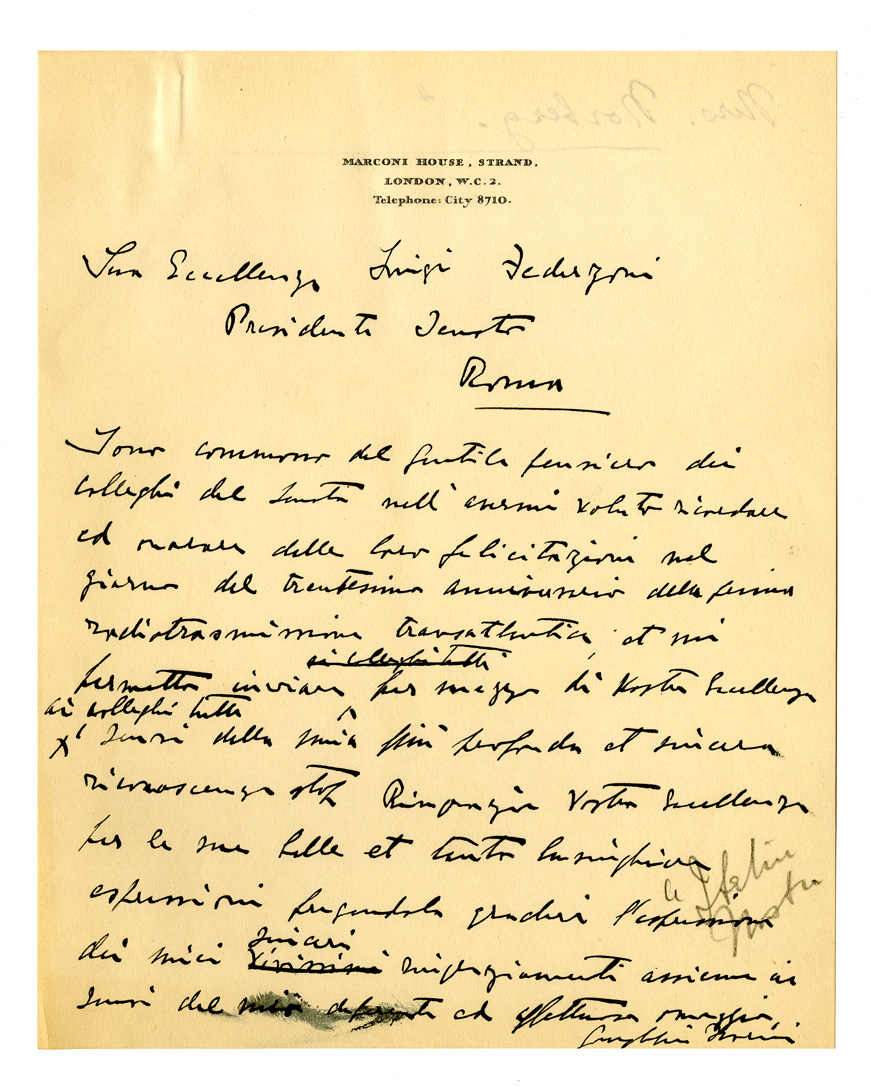 MARCONI HOUSE, STRAND,
LONDON, W.C.2.
Telephone: City 8710.
Sua Eccellenza Luigi Federzoni
Presidente Senato
Roma
Sono commosso del gentile pensiero dei
colleghi del Senato nell' avermi voluto ricordare
ed onorare delle loro felicitazioni nel
giorno del trentesimo anniversario della prima
radiotrasmissione transatlantica, et mi
ai colleghi tutti
permetto inviare per mezzo di Vostra Eccellenza
ai colleghi tutti
i sensi della mia più profonda et sincera
riconoscenza stop Ringrazio Vostra Eccellenza
per le sue belle et tanto lusinghiere
espressioni pregandola gradire l'espressione
sinceri
dei miei vivissimi ringraziamenti assieme ai
sensi del mio deferente ed affettuoso omaggio
Guglielmo Marconi
Mrs. Norberg.